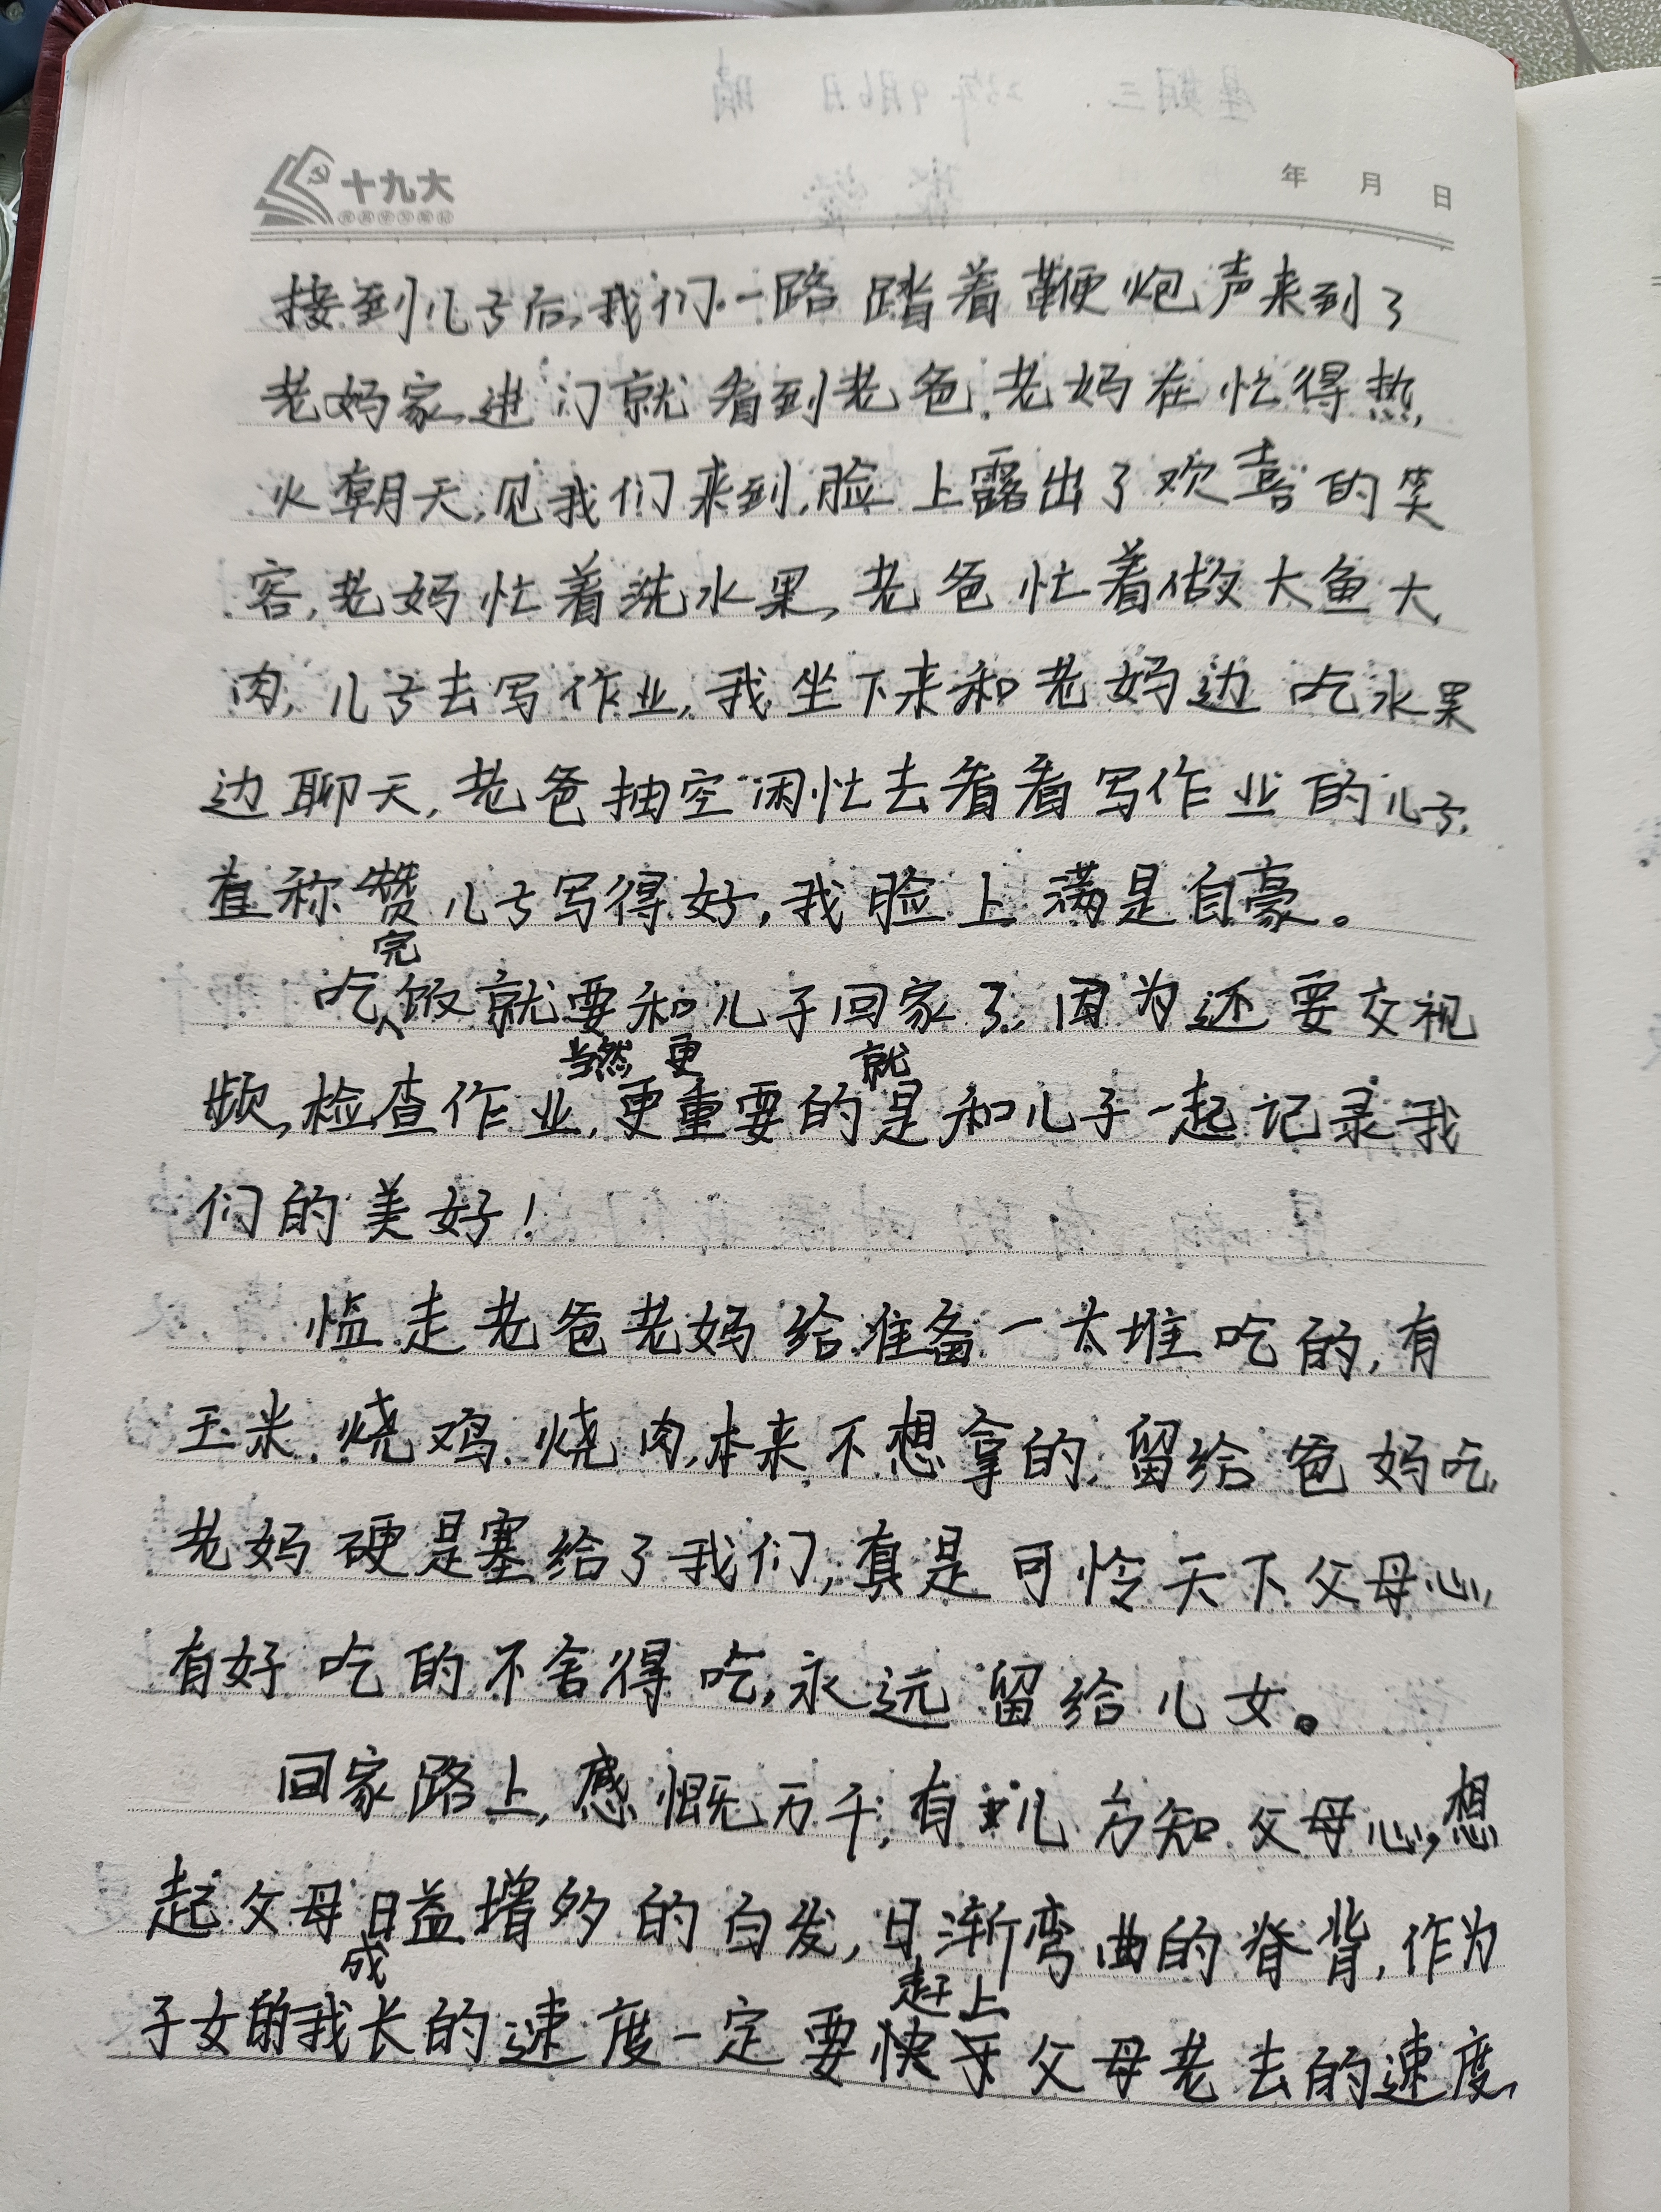 十九大
年 月 日
接到儿子后,我们一路踏着鞭炮声来到了
老妈家,进门就看到老爸、老妈在忙得热
火朝天,见我们来到,脸上露出了欢喜的笑
容,老妈忙着洗水果,老爸忙着做大鱼大
肉,儿子去写作业,我坐下来和老妈边吃水果
边聊天,老爸抽空闲忙去看看写作业的儿子,
直称赞儿子写得好,我脸上满是自豪。
吃完饭就要和儿子回家了,因为还要交视
频,检查作业,当然更重要的就是和儿子一起记录我
们的美好!
临走老爸老妈给准备一大堆吃的,有
玉米、烧鸡、烧肉,本来不想拿的,留给爸妈吃,
老妈硬是塞给了我们,真是可怜天下父母心,
有好吃的不舍得吃,永远留给儿女。
回家路上,感慨万千,有儿方知父母心,想
起父母日益增多的白发,日渐弯曲的脊背,作为
子女的我成长的速度一定要赶上父母老去的速度,